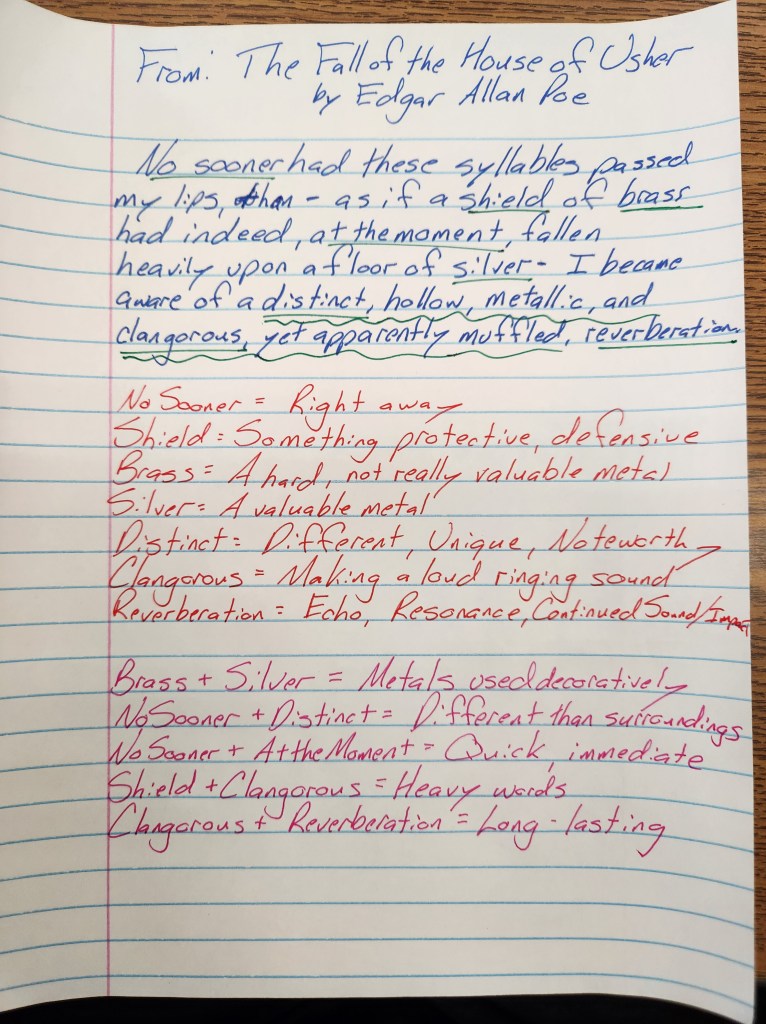 From: The Fall of the House of Usher
by Edgar Allan Poe
No sooner had these syllables passed
my lips, than - as if a shield of brass
had indeed, at the moment, fallen
heavily upon a floor of silver - I became
aware of a distinct, hollow, metallic, and
clangorous, yet apparently muffled, reverberation.
No Sooner = Right away
Shield = Something protective, defensive
Brass = A hard, not really valuable metal
Silver = A valuable metal
Distinct = Different, Unique, Noteworthy
Clangorous = Making a loud ringing sound
Reverberation = Echo, Resonance, Continued Sound/Impact
Brass + Silver = Metals used decoratively
No Sooner + Distinct = Different than surroundings
No Sooner + At the Moment = Quick, immediate
Shield + Clangorous = Heavy words
Clangorous + Reverberation = Long-lasting